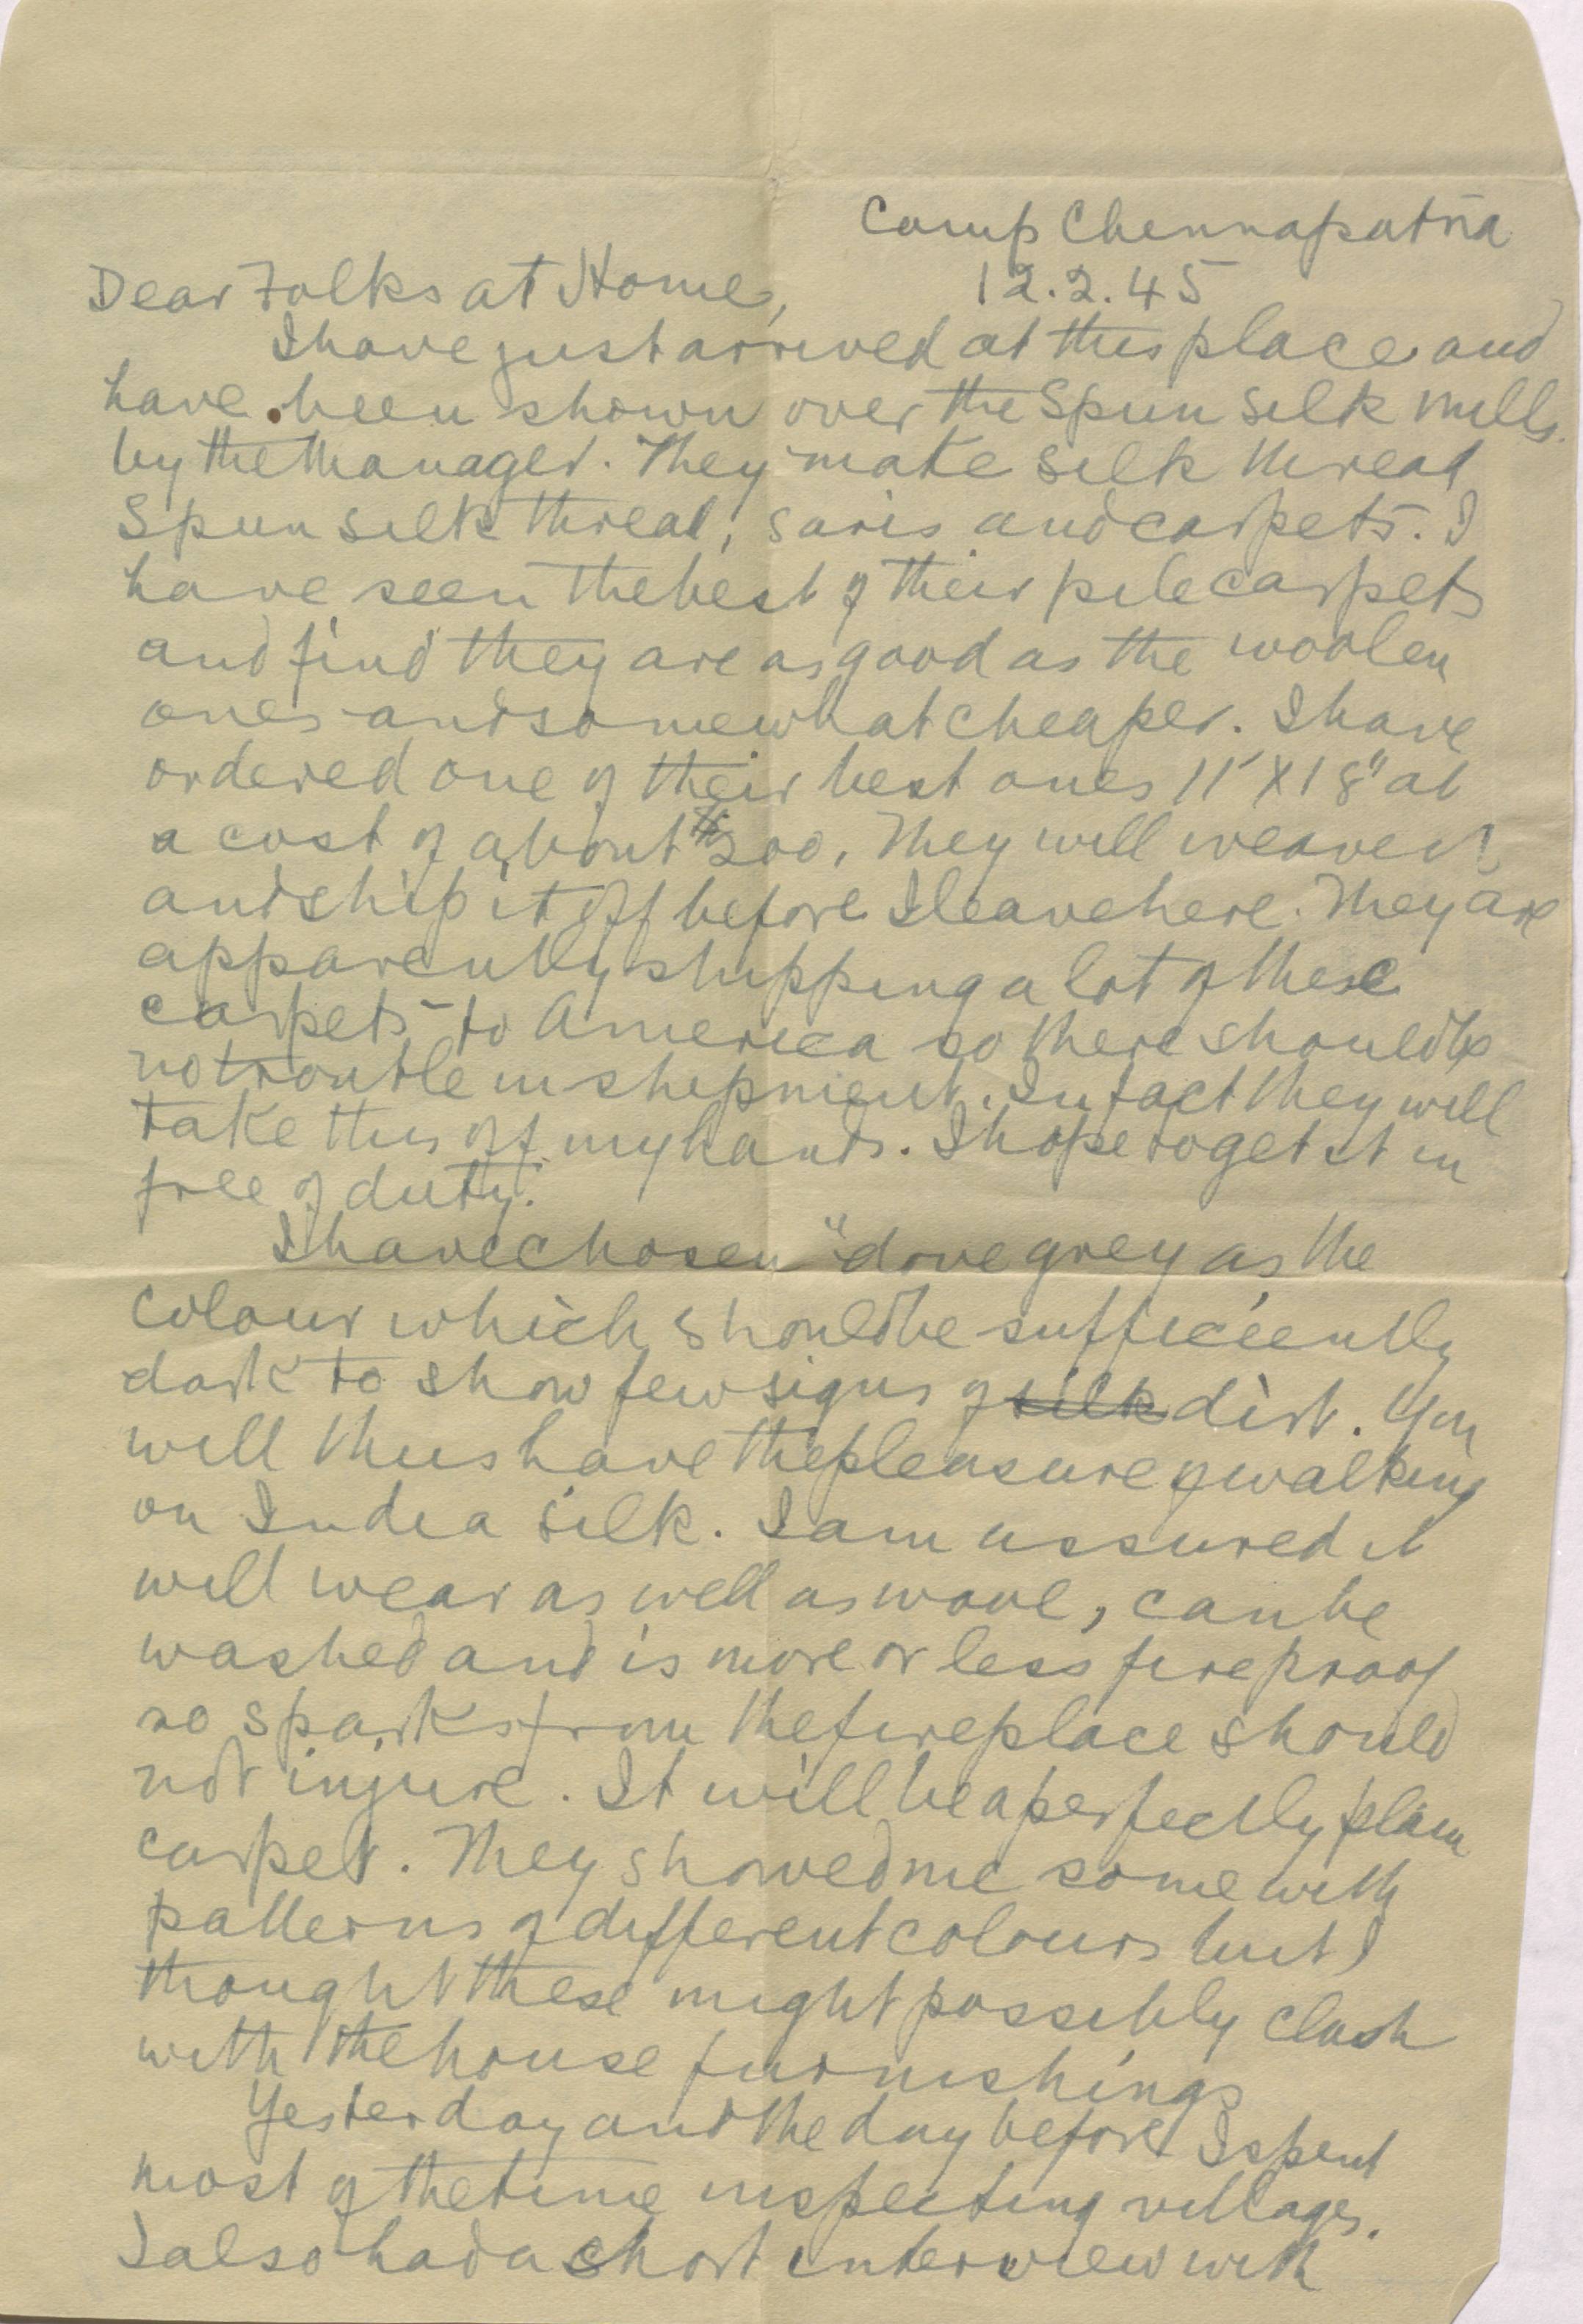 Camp Chennapatna
12.2.45
Dear Folks at Home,
I have just arrived at this place and
have been shown over the Spun Silk Mills
by the Manager. They make silk thread
Spun silk thread, saris and carpets. I
have seen the best of their pile carpets
and find they are as good as the woolen
ones and somewhat cheaper. I have
ordered one of their best ones 11' X 18" at
a cost of about $200. They will weave it
and ship it off before I leave here. They are
apparently shipping a lot of these
carpets to America so there should be
no trouble in shipment. In fact they will
take this off my hands. I hope to get it in
free of duty.
I have chosen "dove grey as the
colour which should be sufficiently
dark to show few signs of silk dirt. You
will thus have the pleasure of walking
on India silk. I am assured it
will wear as well as wool, can be
washed and is more or less fireproof
so sparks from the fireplace should
not injure. It will be a perfectly plain
carpet. They showed me some with
patterns of different colours but I
thought these might possibly clash
with the house furnishings
Yesterday and the day before I spent
most of the time inspecting villages.
I also had a short interview with